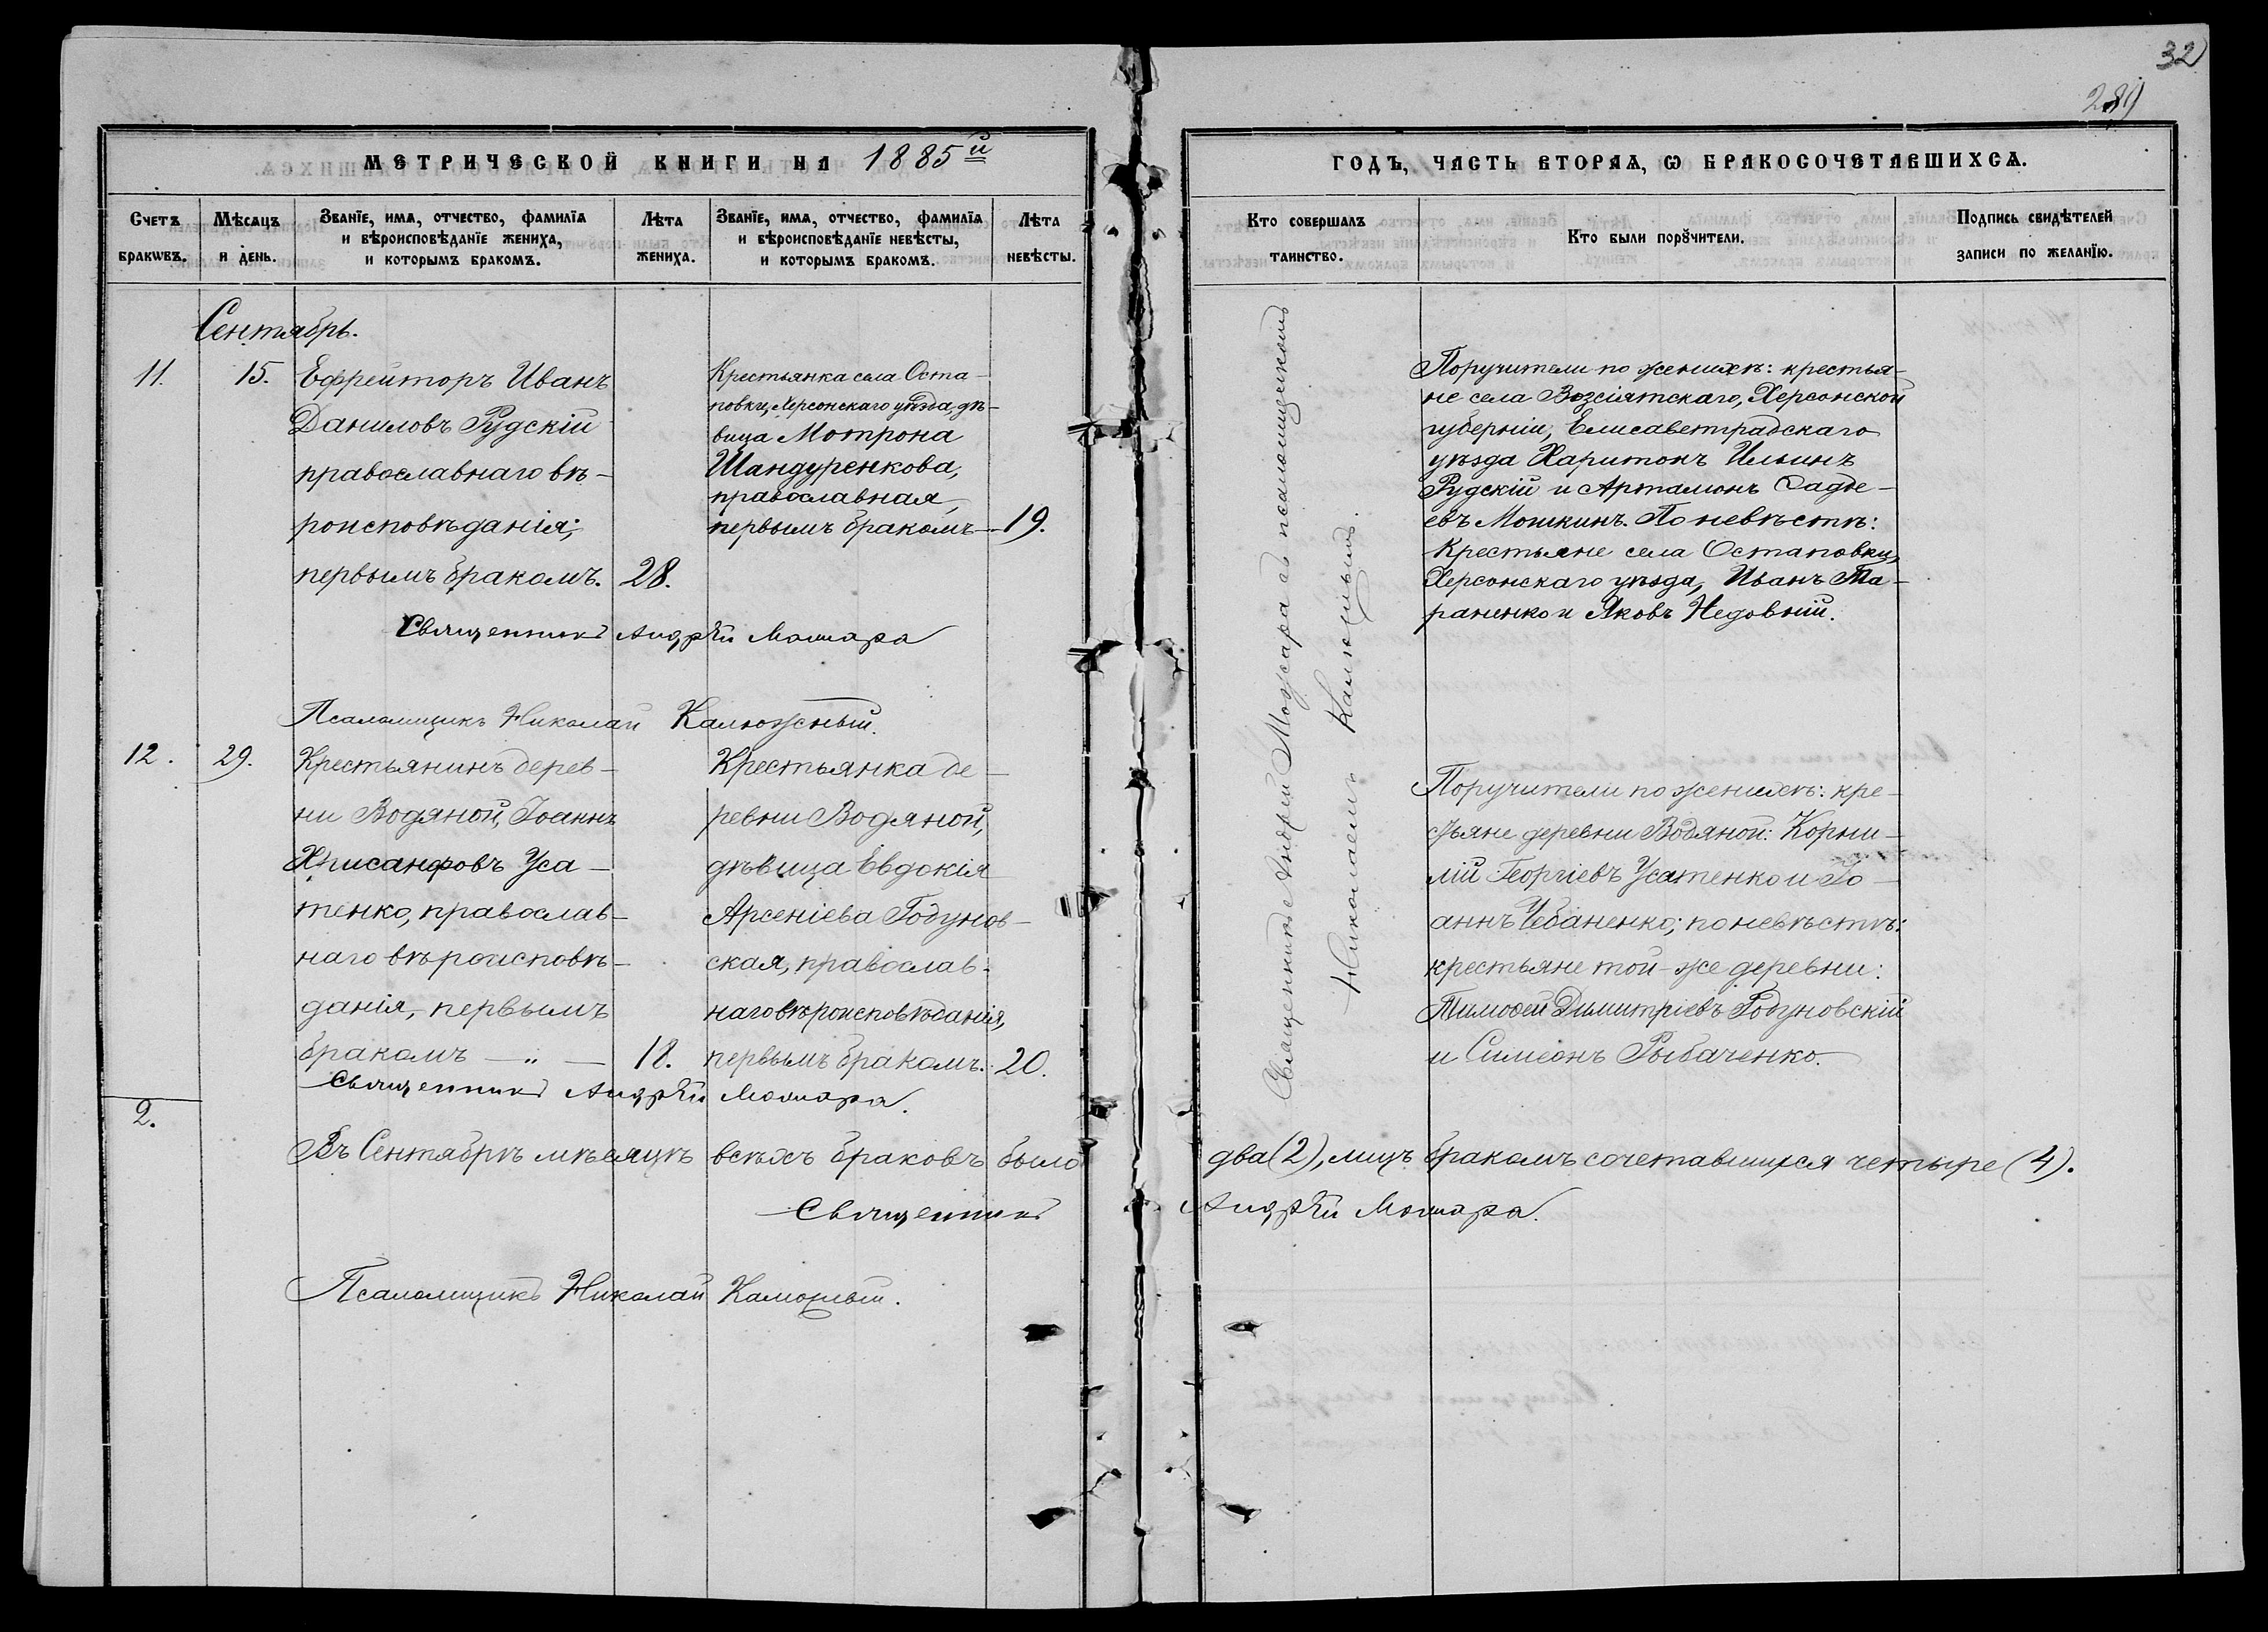 32
289
МЕТРИЧЕСКОЙ КНИГИ НА 1885й
ГОДЪ, ЧАСТЬ ВТОРАЯ, Ѡ БРАКОСОЧЕТАВШИХСѦ.
Счетъ бракѡвъ.
Мѣсяцъ и день.
Званїе, имѧ, отчество, фамилїѧ
и вѣроисповѣданїе жениха,
и которымъ бракомъ.
Лѣта жениха.
Званїе, имѧ, отчество, фамилїѧ
и вѣроисповѣданїе невѣсты,
и которымъ бракомъ.
Лѣта невѣсты.
Кто совершалъ таинство.
Кто были порꙋчители.
Подпись свидѣтелей
записи по желанїю.
Сентябрь.
11.
15.
Ефрейторъ Иванъ
Даниловъ Рудскій
православнаго вѣ-
роисповѣданія;
первымъ бракомъ.
28.
Крестьянка села Оста-
повки, Херсонскаго уѣзда, дѣ-
вица Мотрона
Шандуренкова,
православная,
первымъ бракомъ—
19.
Священникъ Андрей Можара
Псаломщикъ Николай Калюжный.
Священникъ Андрей Можара съ псаломщикомъ
Николаемъ Калюжнымъ.
Поручители по женихѣ: крестья-
не села Возсіятскаго, Херсонской
губерніи, Елисаветградскаго
уѣзда Харитонъ Ильинъ
Рудскій и Артамонъ Фадѣ-
евъ Мошкинъ. По невѣстѣ:
Крестьяне села Остаповки,
Херсонскаго уѣзда, Иванъ Та-
раненко и Яковъ Недовній.
12.
29.
Крестьянинъ дерев-
ни Водяной, Іоаннъ
Хрисанфовъ Уса-
тенко, православ-
наго вѣроисповѣ-
данія, первымъ
бракомъ — „ —
18.
Крестьянка де-
ревни Водяной,
дѣвица Евдокія
Арсеніева Годунов-
ская, православ-
наго вѣроисповѣданія,
первымъ бракомъ.
20.
Священникъ Андрей Можара.
Поручители по женихѣ: кре-
стьяне деревни Водяной: Корни-
лій Георгіевъ Усатенко и Іо-
аннъ Чебаненко; по невѣстѣ:
крестьяне той-же деревни:
Тимофей Димитріевъ Годуновскій
и Симеонъ Рыбаченко.
2.
Въ Сентябрѣ мѣсяцѣ всѣхъ браковъ было два (2), лицъ бракомъ сочетавшихся четыре (4).
Священникъ Андрей Можара.
Псаломщикъ Николай Калюжный.